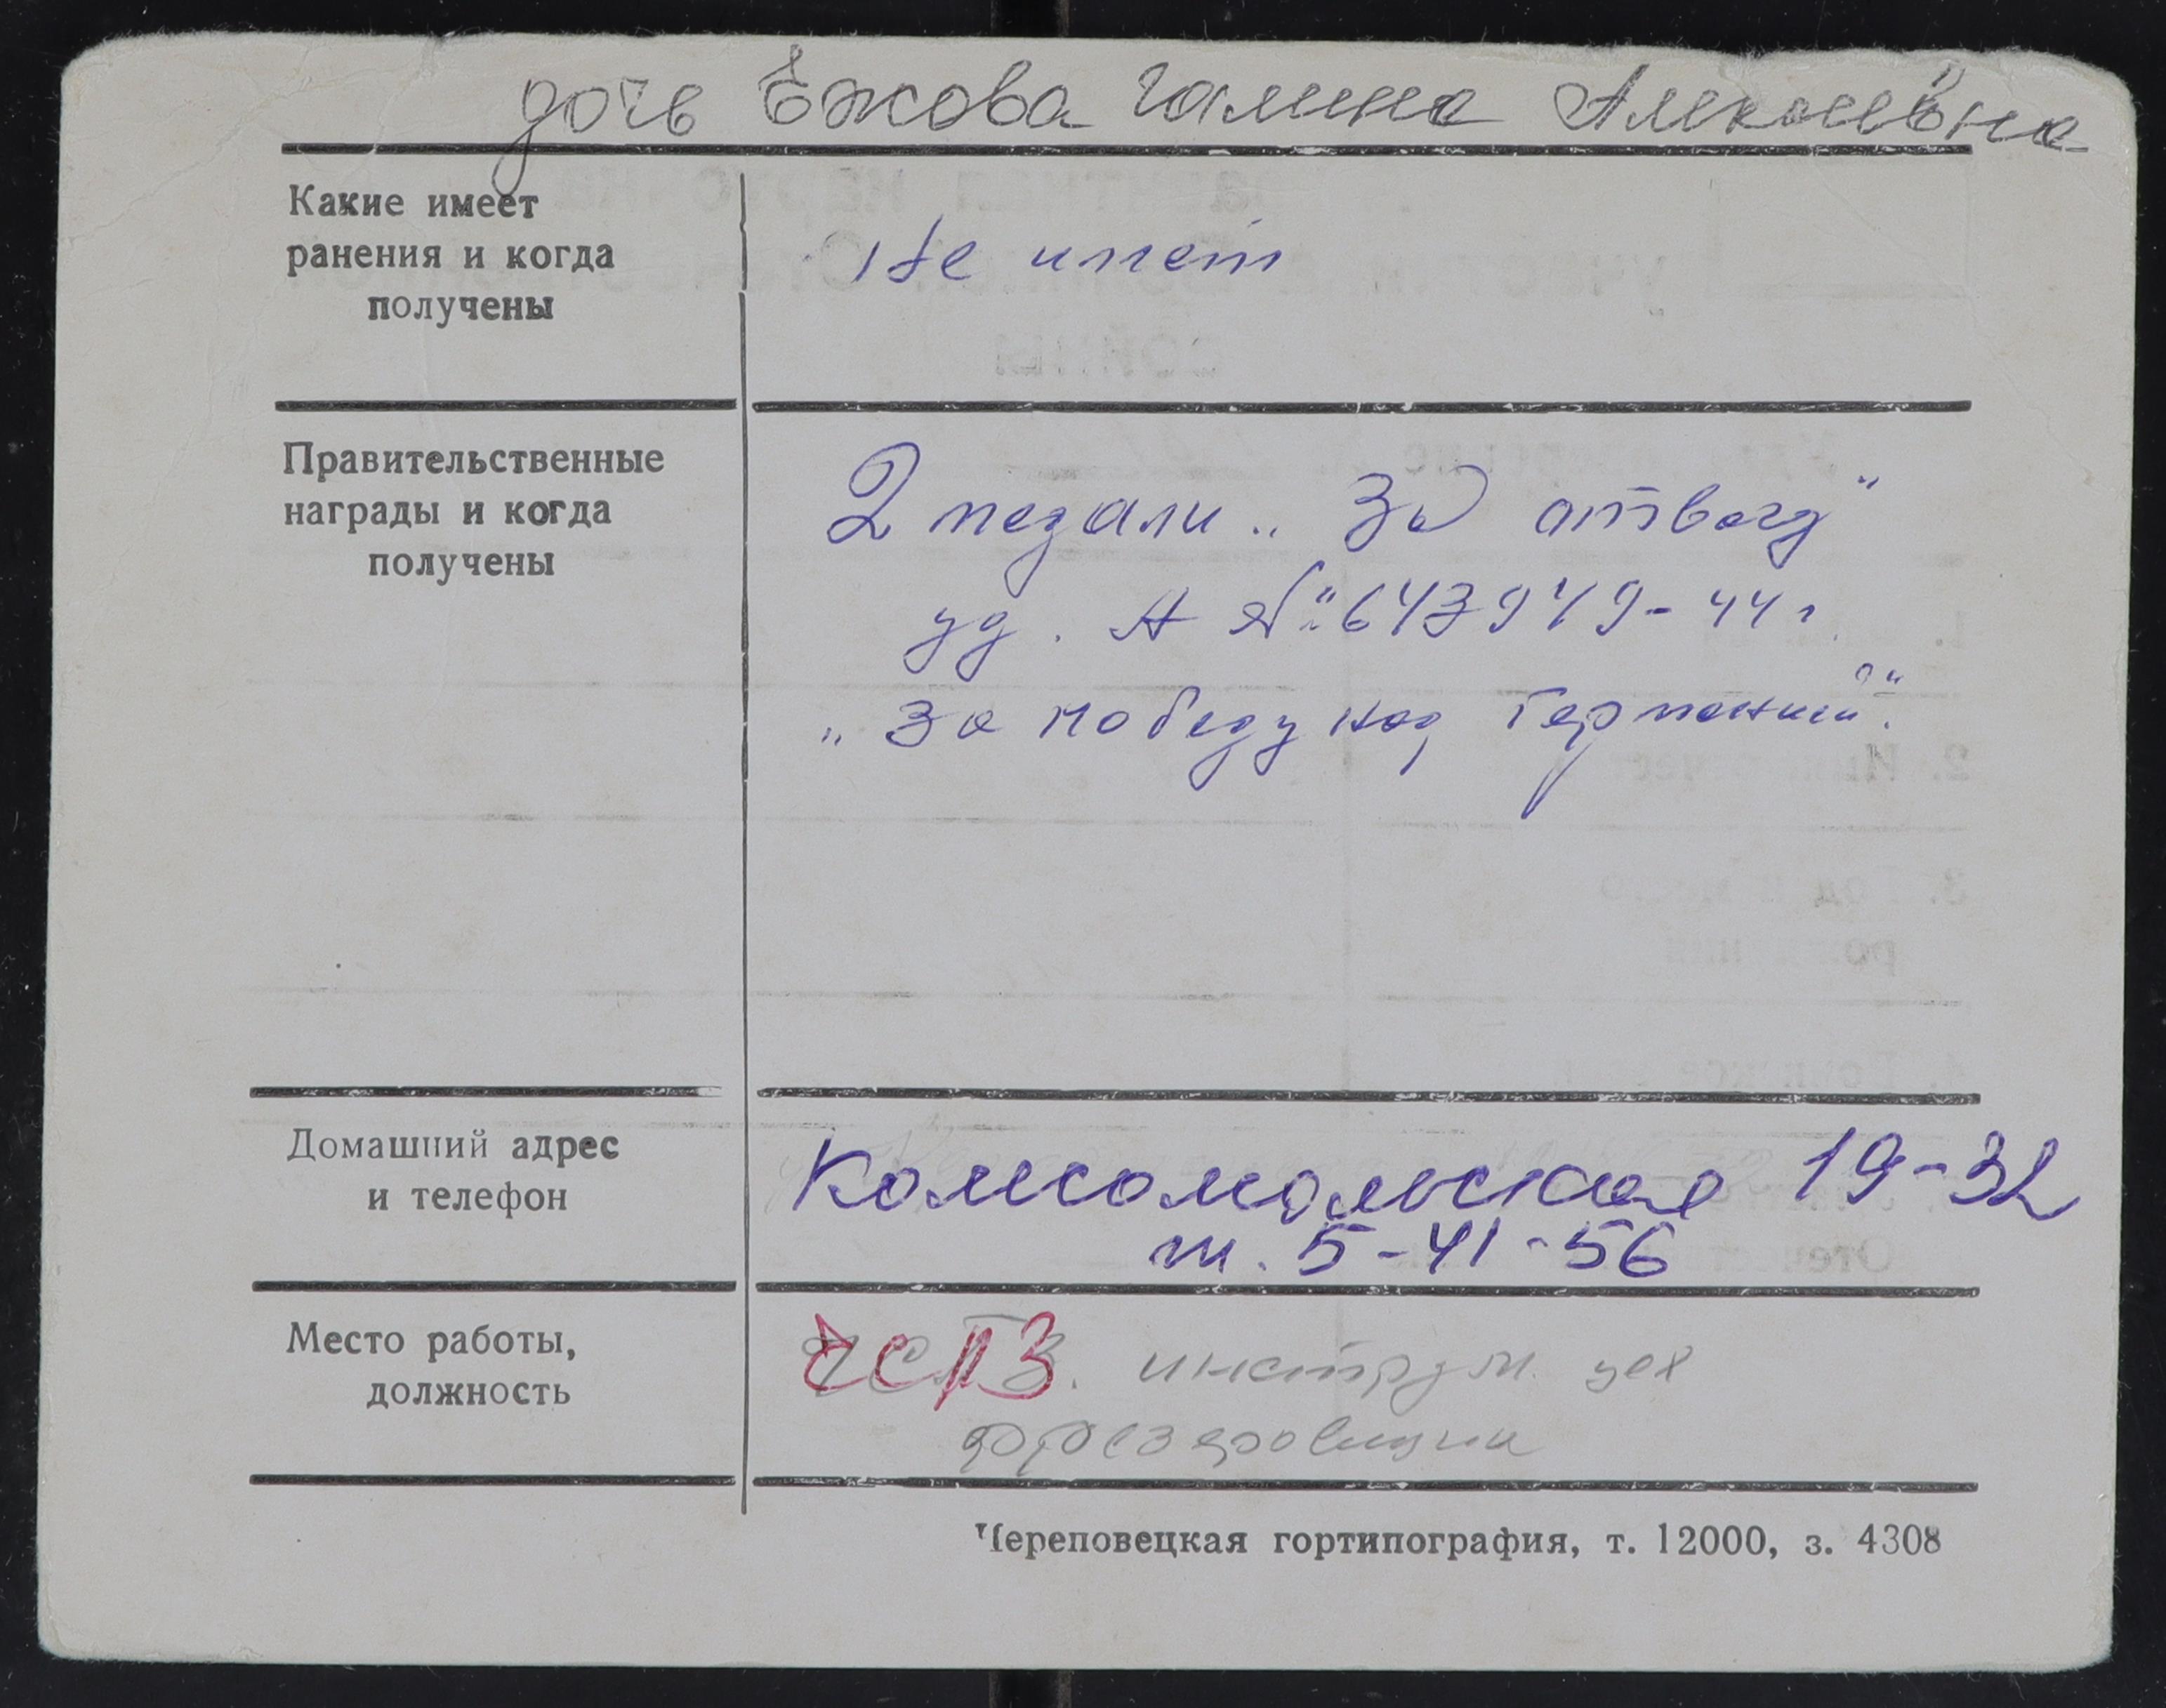 дочь Ежова Галина Алексеевна
Какие имеет
ранения и когда
получены
Не имет
Правительственные
награды и когда
получены
2 медали „За отвагу"
уд. А №643949-44г.
„За победу над Германией".
Домашний адрес
и телефон
Комсомольская 19-32
т. 5-41-56
Место работы,
должность
ЧСПЗ. инструм. цех
фрезеровщик
Череповецкая гортипография, т. 12000, з. 4308